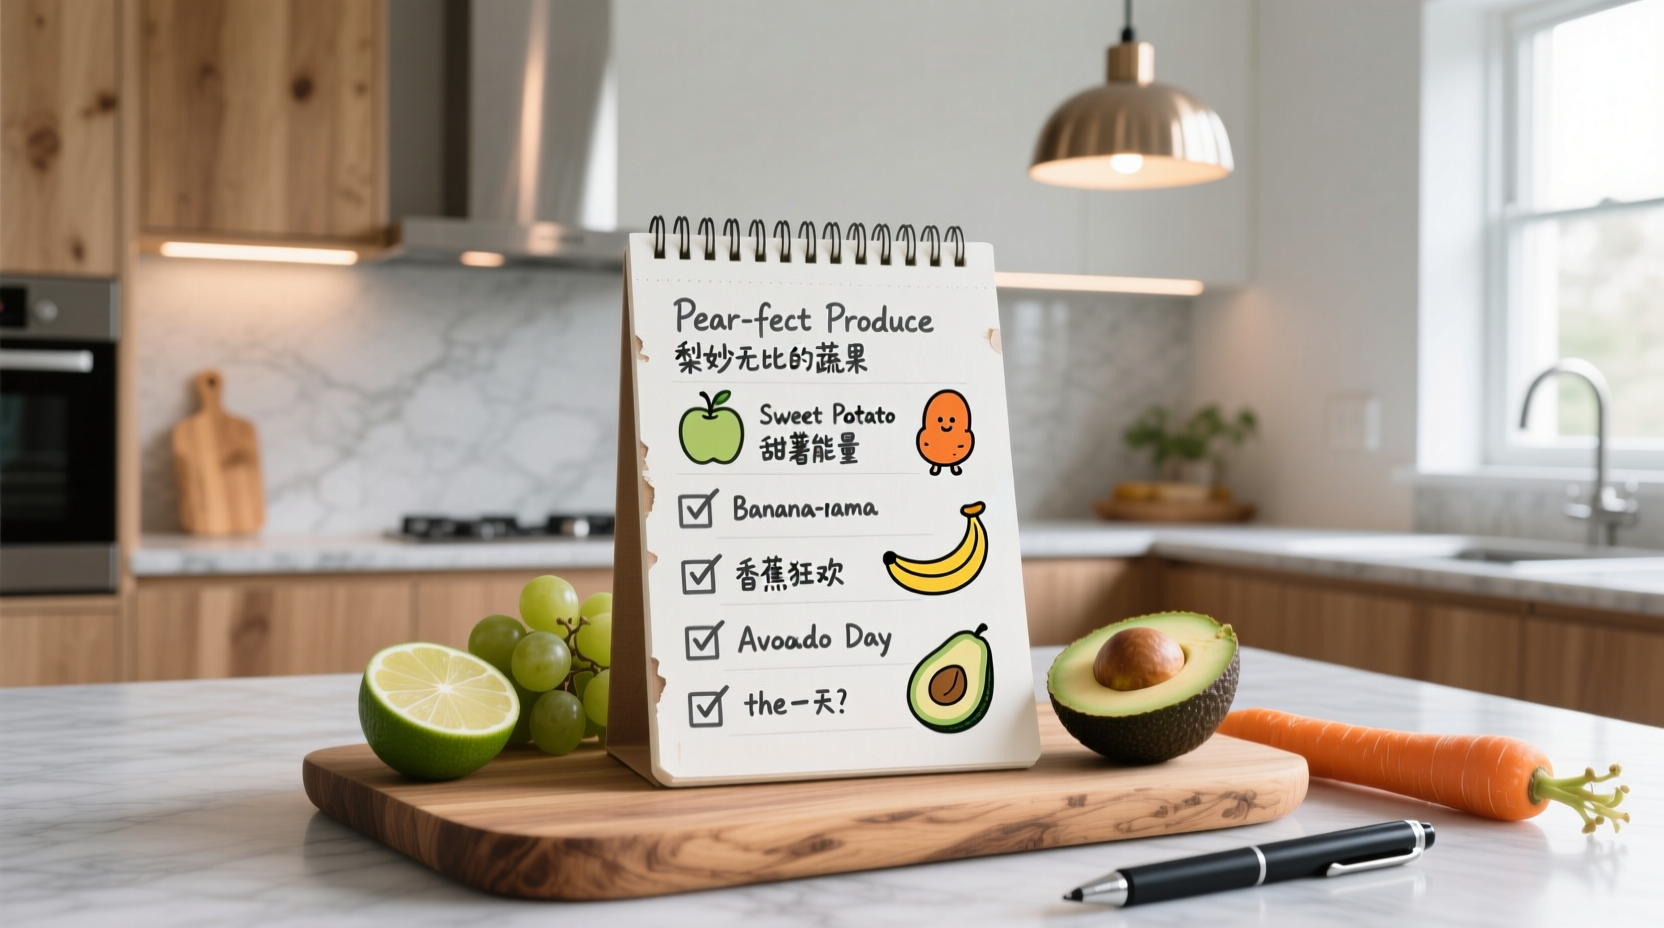 Pear-fect Produce
梨妙无比的蔬果
Sweet Potato
甜薯能量
Banana-rama
香蕉狂欢
Avoado Day
the一天?